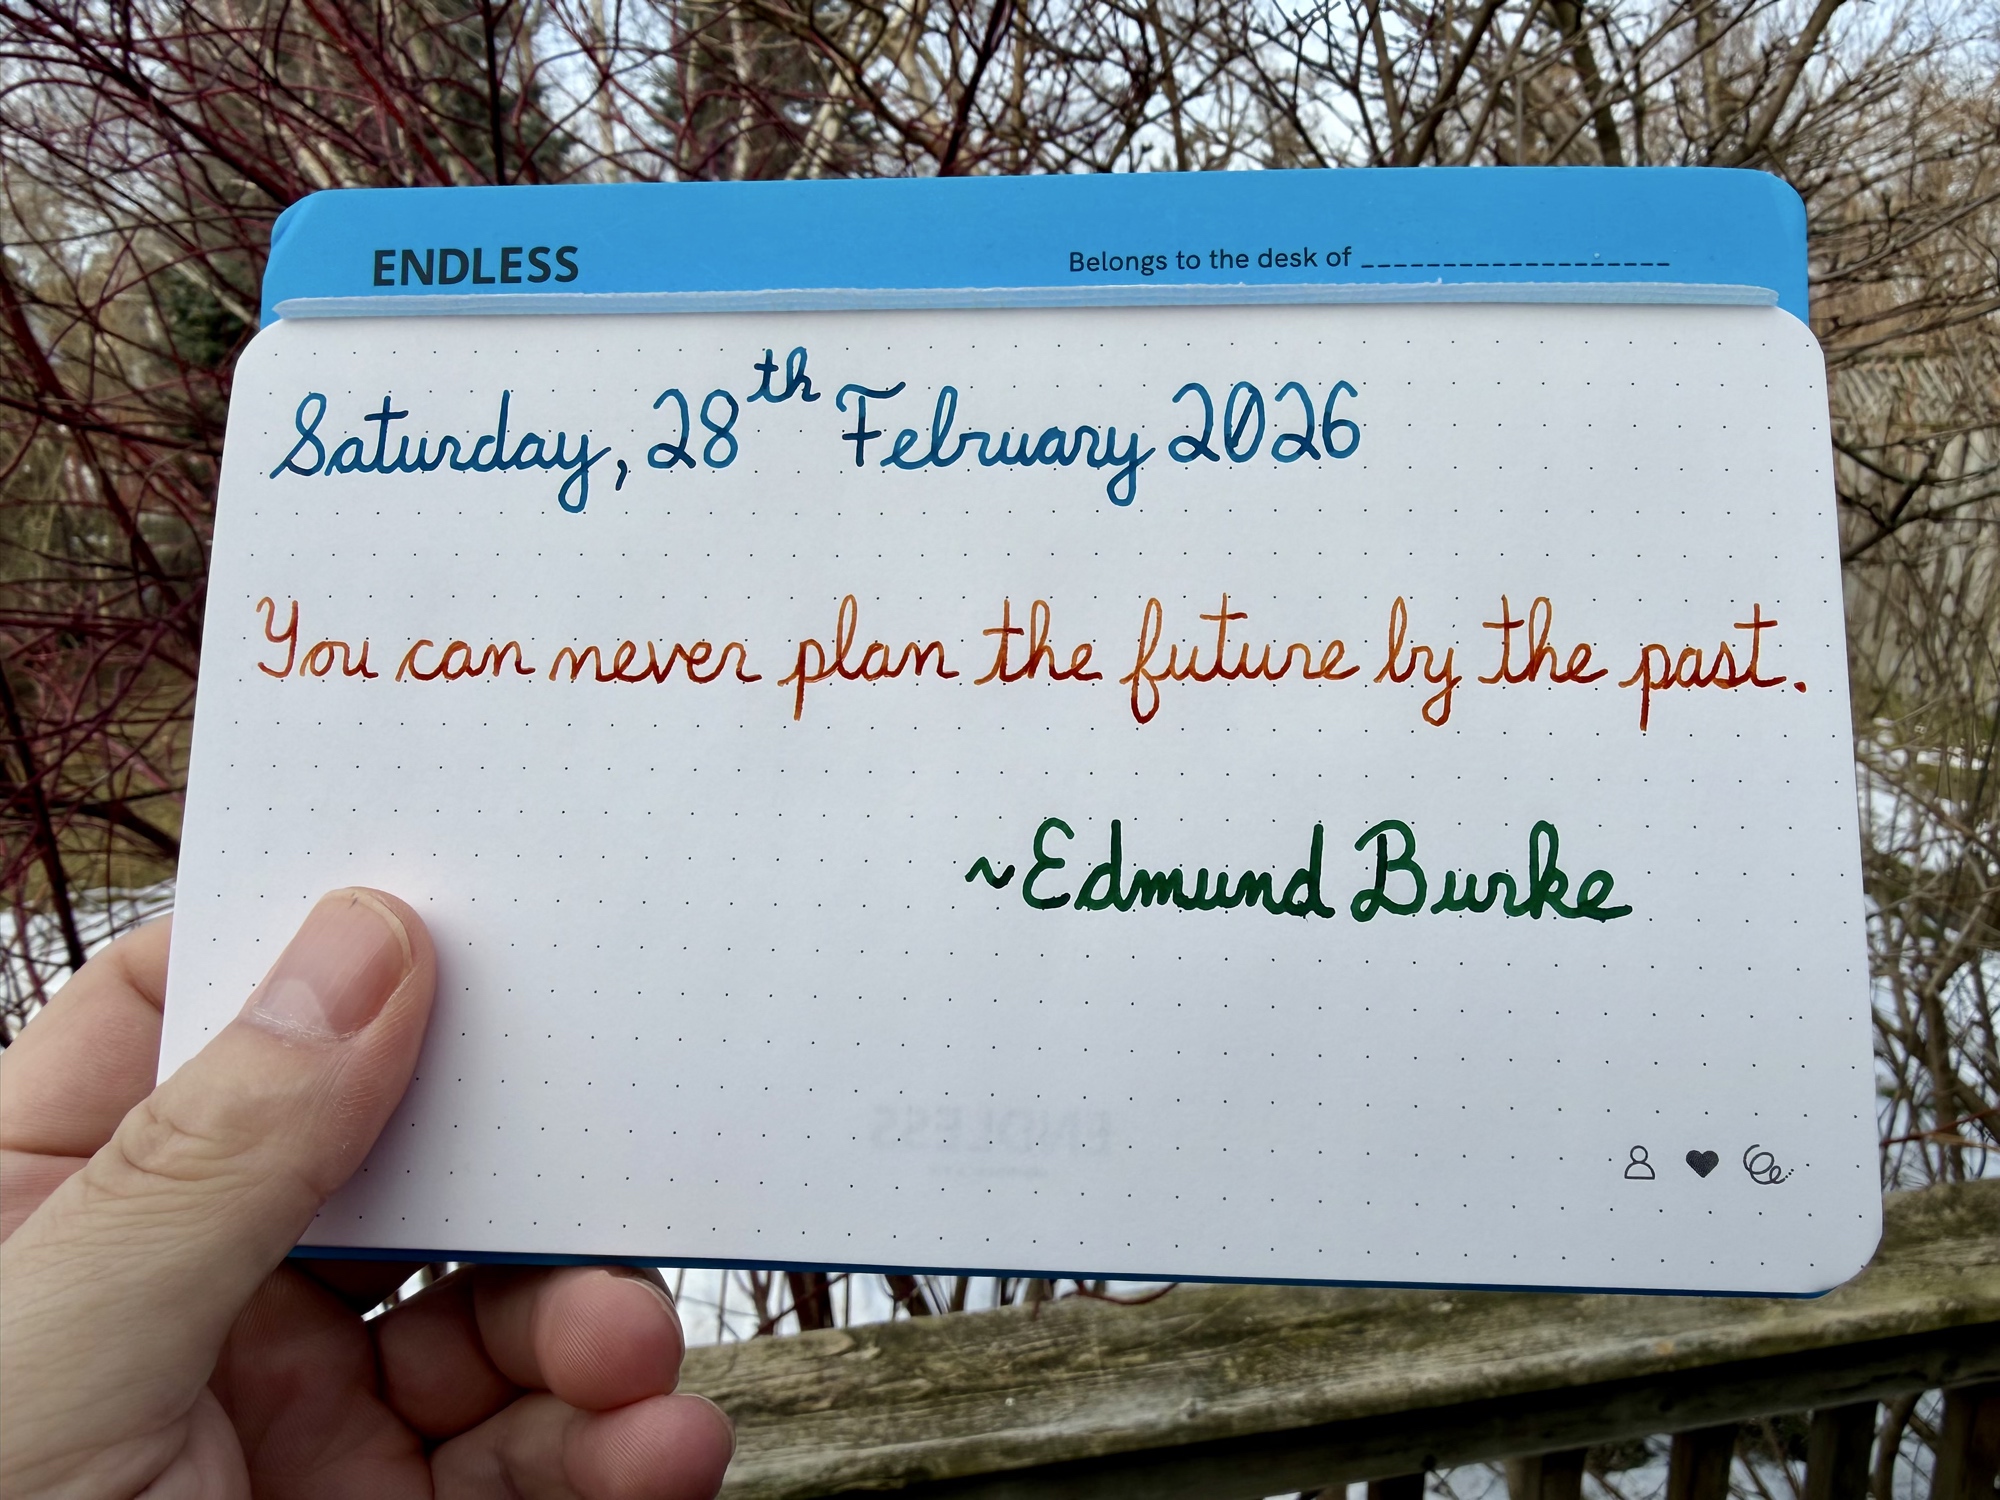 ENDLESS
Belongs to the desk of ____________________
Saturday, 28th February 2026
You can never plan the future by the past.
~Edmund Burke
ENDLESS